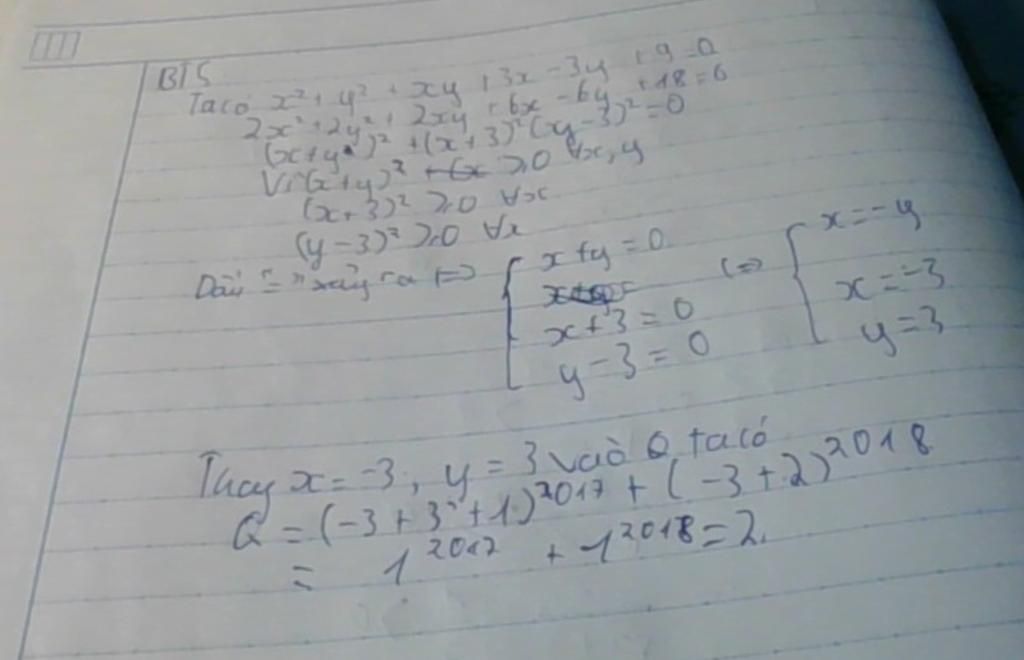 BT5
Ta có x² + y² + xy + 3x - 3y + 9 = 0
2x² + 2y² + 2xy + 6x - 6y + 18 = 0
(x+y)² + (x+3)² (y-3)² = 0
Vì (x+y)² ≥ 0 ∀x, y
(x+3)² ≥ 0 ∀x
(y-3)² ≥ 0 ∀x
Dấu "=" xảy ra <=> { x + y = 0 <=> { x = -y
x + 3 = 0 x = -3
y - 3 = 0 y = 3
Thay x = -3, y = 3 vào Q ta có
Q = (-3 + 3 + 1)²⁰¹⁷ + (-3 + 2)²⁰¹⁸
= 1²⁰¹⁷ + 1²⁰¹⁸ = 2.